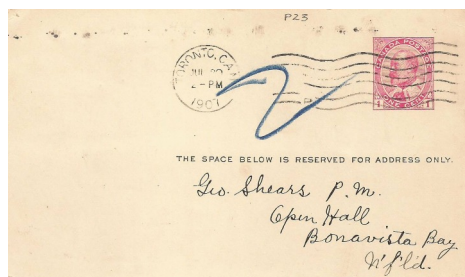 P23
TORONTO, CAN
JUL
2 - PM
1907
CANADA POSTAGE
ONE CENT
THE SPACE BELOW IS RESERVED FOR ADDRESS ONLY.
Geo. Shears P.M.
Open Hall
Bonavista Bay
N'f'l'd.